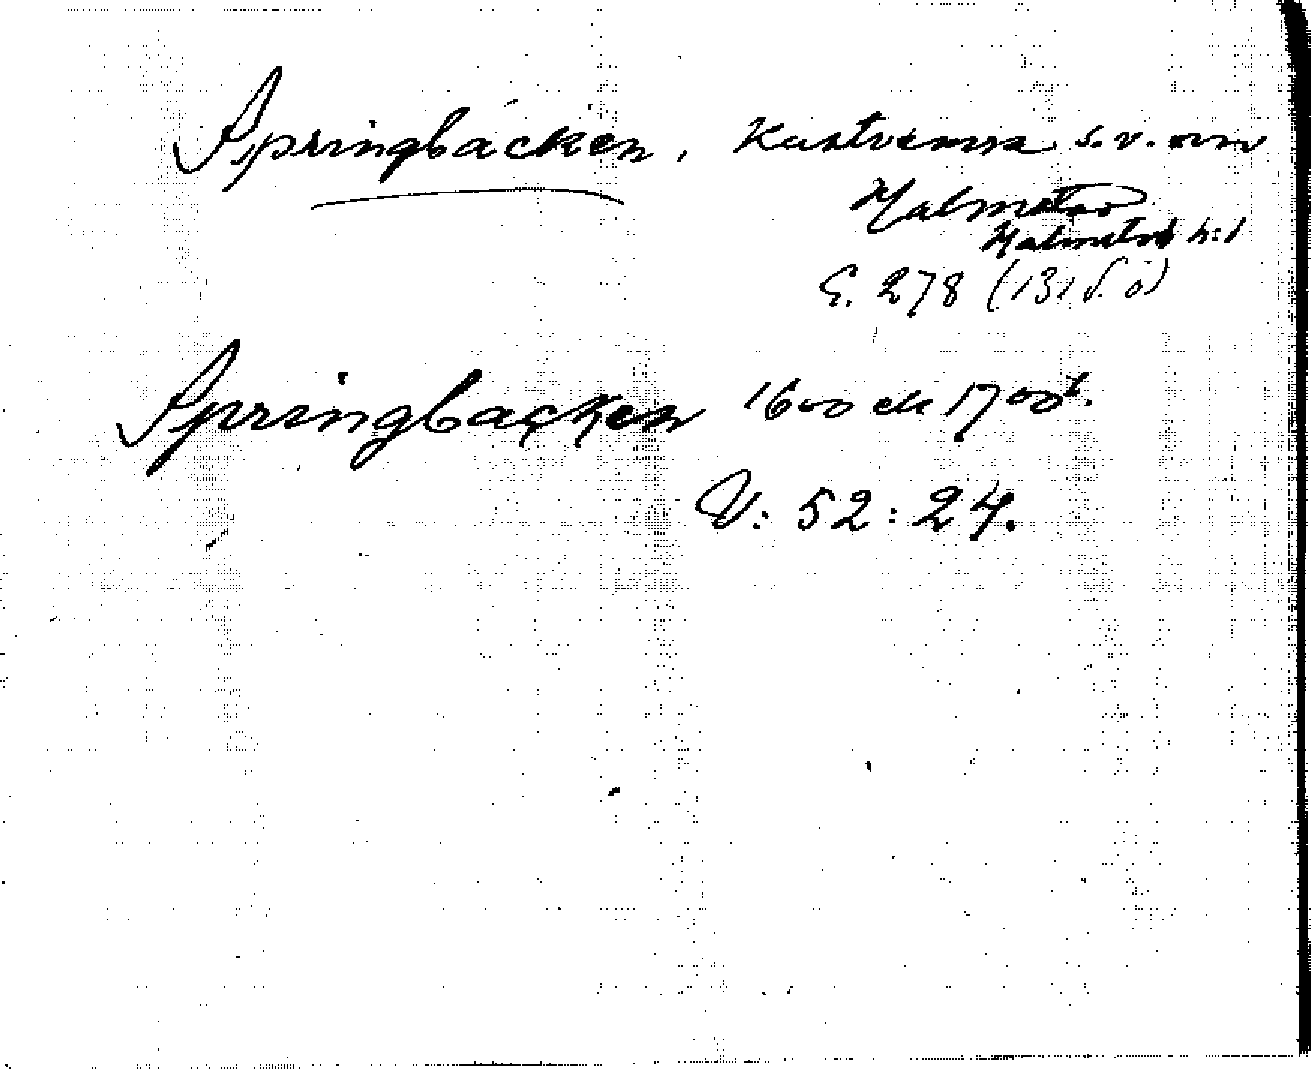 Springbäcken, Kastvenna s.v. om
Malmetorp
Malmetorp h:d
G. 278 (131 S. ö)
Springbacken 1600 ek 1700t.
V: 52:24.